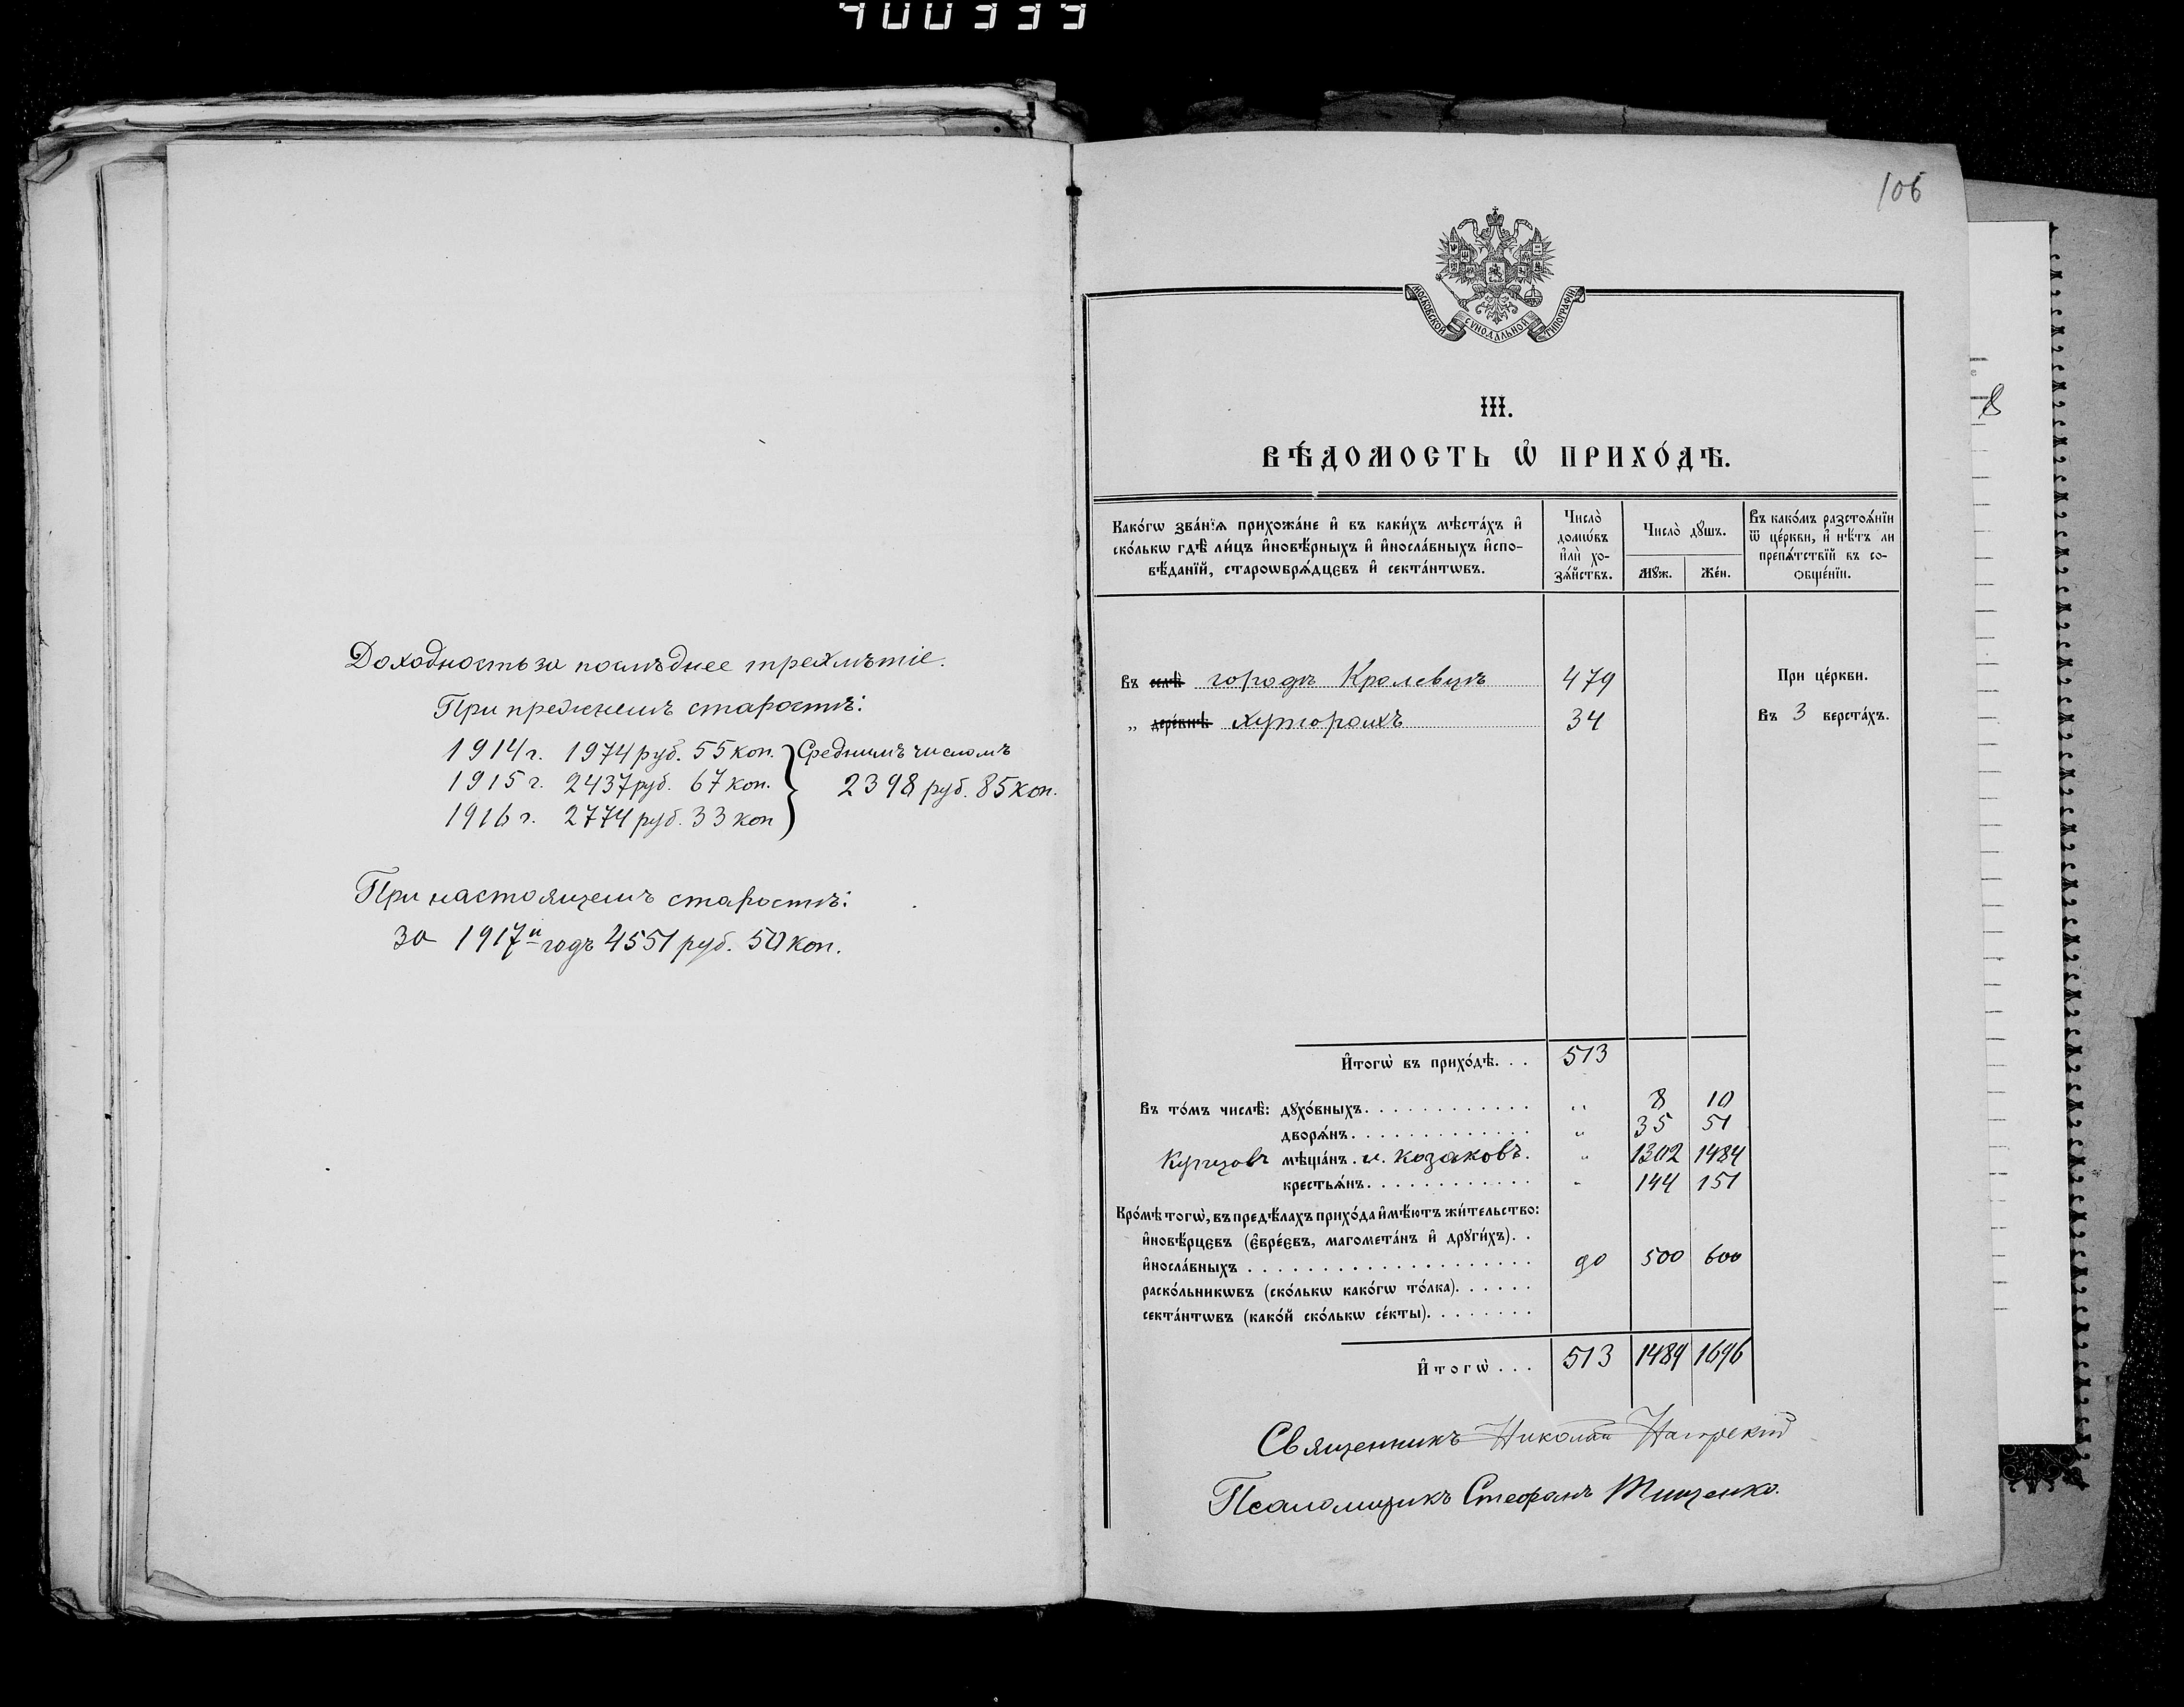 400333
Доходность за послѣднее трехлѣтіе.
При прежнемъ старостѣ:
1914 г. 1974 руб. 55 коп. } Среднимъ числомъ
1915 г. 2437 руб. 67 коп. 2398 руб. 85 коп.
1916 г. 2774 руб. 33 коп
При настоящемъ старостѣ:
За 1917й годъ 4551 руб. 50 коп.
106
МОСКОВСКОЙ СѴНОДАЛЬНОЙ ТИПОГРАФІИ.
III.
ВѢ́ДОМОСТЬ Ѡ҆ ПРИХО́ДѢ.
Како́гѡ зва́нїѧ прихожа́не и҆ въ каки́хъ мѣста́хъ и҆
ско́лькѡ гдѣ̀ ли́цъ и҆новѣ́рныхъ и҆ и҆носла́вныхъ и҆спо-
вѣ́данїй, староѡбрѧ́дцєвъ и҆ секта́нтѡвъ.
Число̀
домѡ́въ
и҆лѝ хо-
зѧ́йствъ.
Число̀ дꙋ́шъ.
Мꙋ́ж.
Же́н.
Въ како́мъ разстоѧ́нїи
ѿ це́ркви, и҆ нѣ́тъ ли
препѧ́тствїй въ со-
ѻбще́нїи.
Въ селѣ̀ городѣ Кролевцѣ 479 При це́ркви.
„ дере́внѣ хуторахъ 34 Въ 3 верста́хъ.
И҆тогѡ̀ въ прихо́дѣ. . . 513
Въ то́мъ числѣ̀: дꙋхо́вныхъ. . . . . . . . . . . . „ 8 10
дворѧ́нъ. . . . . . . . . . . . . „ 35 51
Купцовъ мѣща́нъ. и. козаковъ. „ 1302 1484
крестьѧ́нъ. . . . . . . . . . . . - 144 151
Кро́мѣ тогѡ̀, въ предѣ́лахъ прихо́да и҆мѣ́ютъ жи́тельство:
и҆новѣ́рцєвъ (є҆вре́євъ, магомета́нъ и҆ дрꙋги́хъ). .
и҆носла́вныхъ . . . . . . . . . . . . . . . . . . . . . до 500 600
раско́льникѡвъ (ско́лькѡ како́гѡ то́лка). . . . . .
секта́нтѡвъ (како́й ско́лькѡ се́кты). . . . . . . . .
И҆тогѡ̀ . . . 513 1489 1696
Священникъ Николай
Псаломщикъ Стефанъ Тищенко.